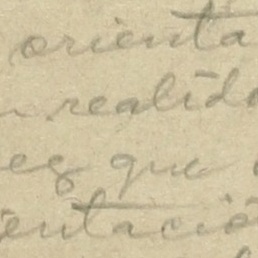 orienta
realida
es que
entació